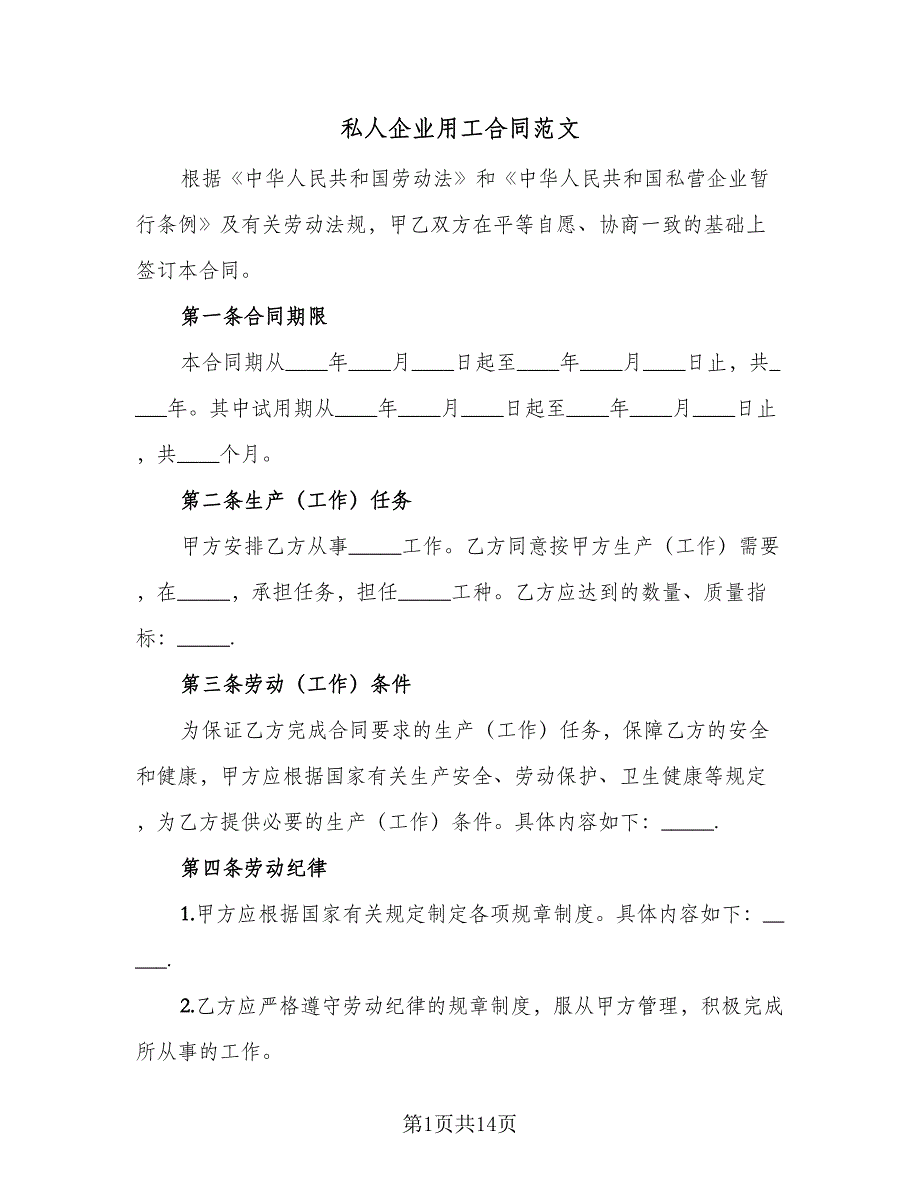 私人企业用工合同范文
根据《中华人民共和国劳动法》和《中华人民共和国私营企业暂
行条例》及有关劳动法规，甲乙双方在平等自愿、协商一致的基础上
签订本合同。
第一条合同期限
本合同期从____年____月____日起至____年____月____日止，共_
___年。其中试用期从____年____月____日起至____年____月____日止
，共____个月。
第二条生产（工作）任务
甲方安排乙方从事_____工作。乙方同意按甲方生产（工作）需要
，在_____，承担任务，担任_____工种。乙方应达到的数量、质量指
标：_____.
第三条劳动（工作）条件
为保证乙方完成合同要求的生产（工作）任务，保障乙方的安全
和健康，甲方应根据国家有关生产安全、劳动保护、卫生健康等规定
，为乙方提供必要的生产（工作）条件。具体内容如下：_____.
第四条劳动纪律
1.甲方应根据国家有关规定制定各项规章制度。具体内容如下：__
___.
2.乙方应严格遵守劳动纪律的规章制度，服从甲方管理，积极完成
所从事的工作。
第1页共14页